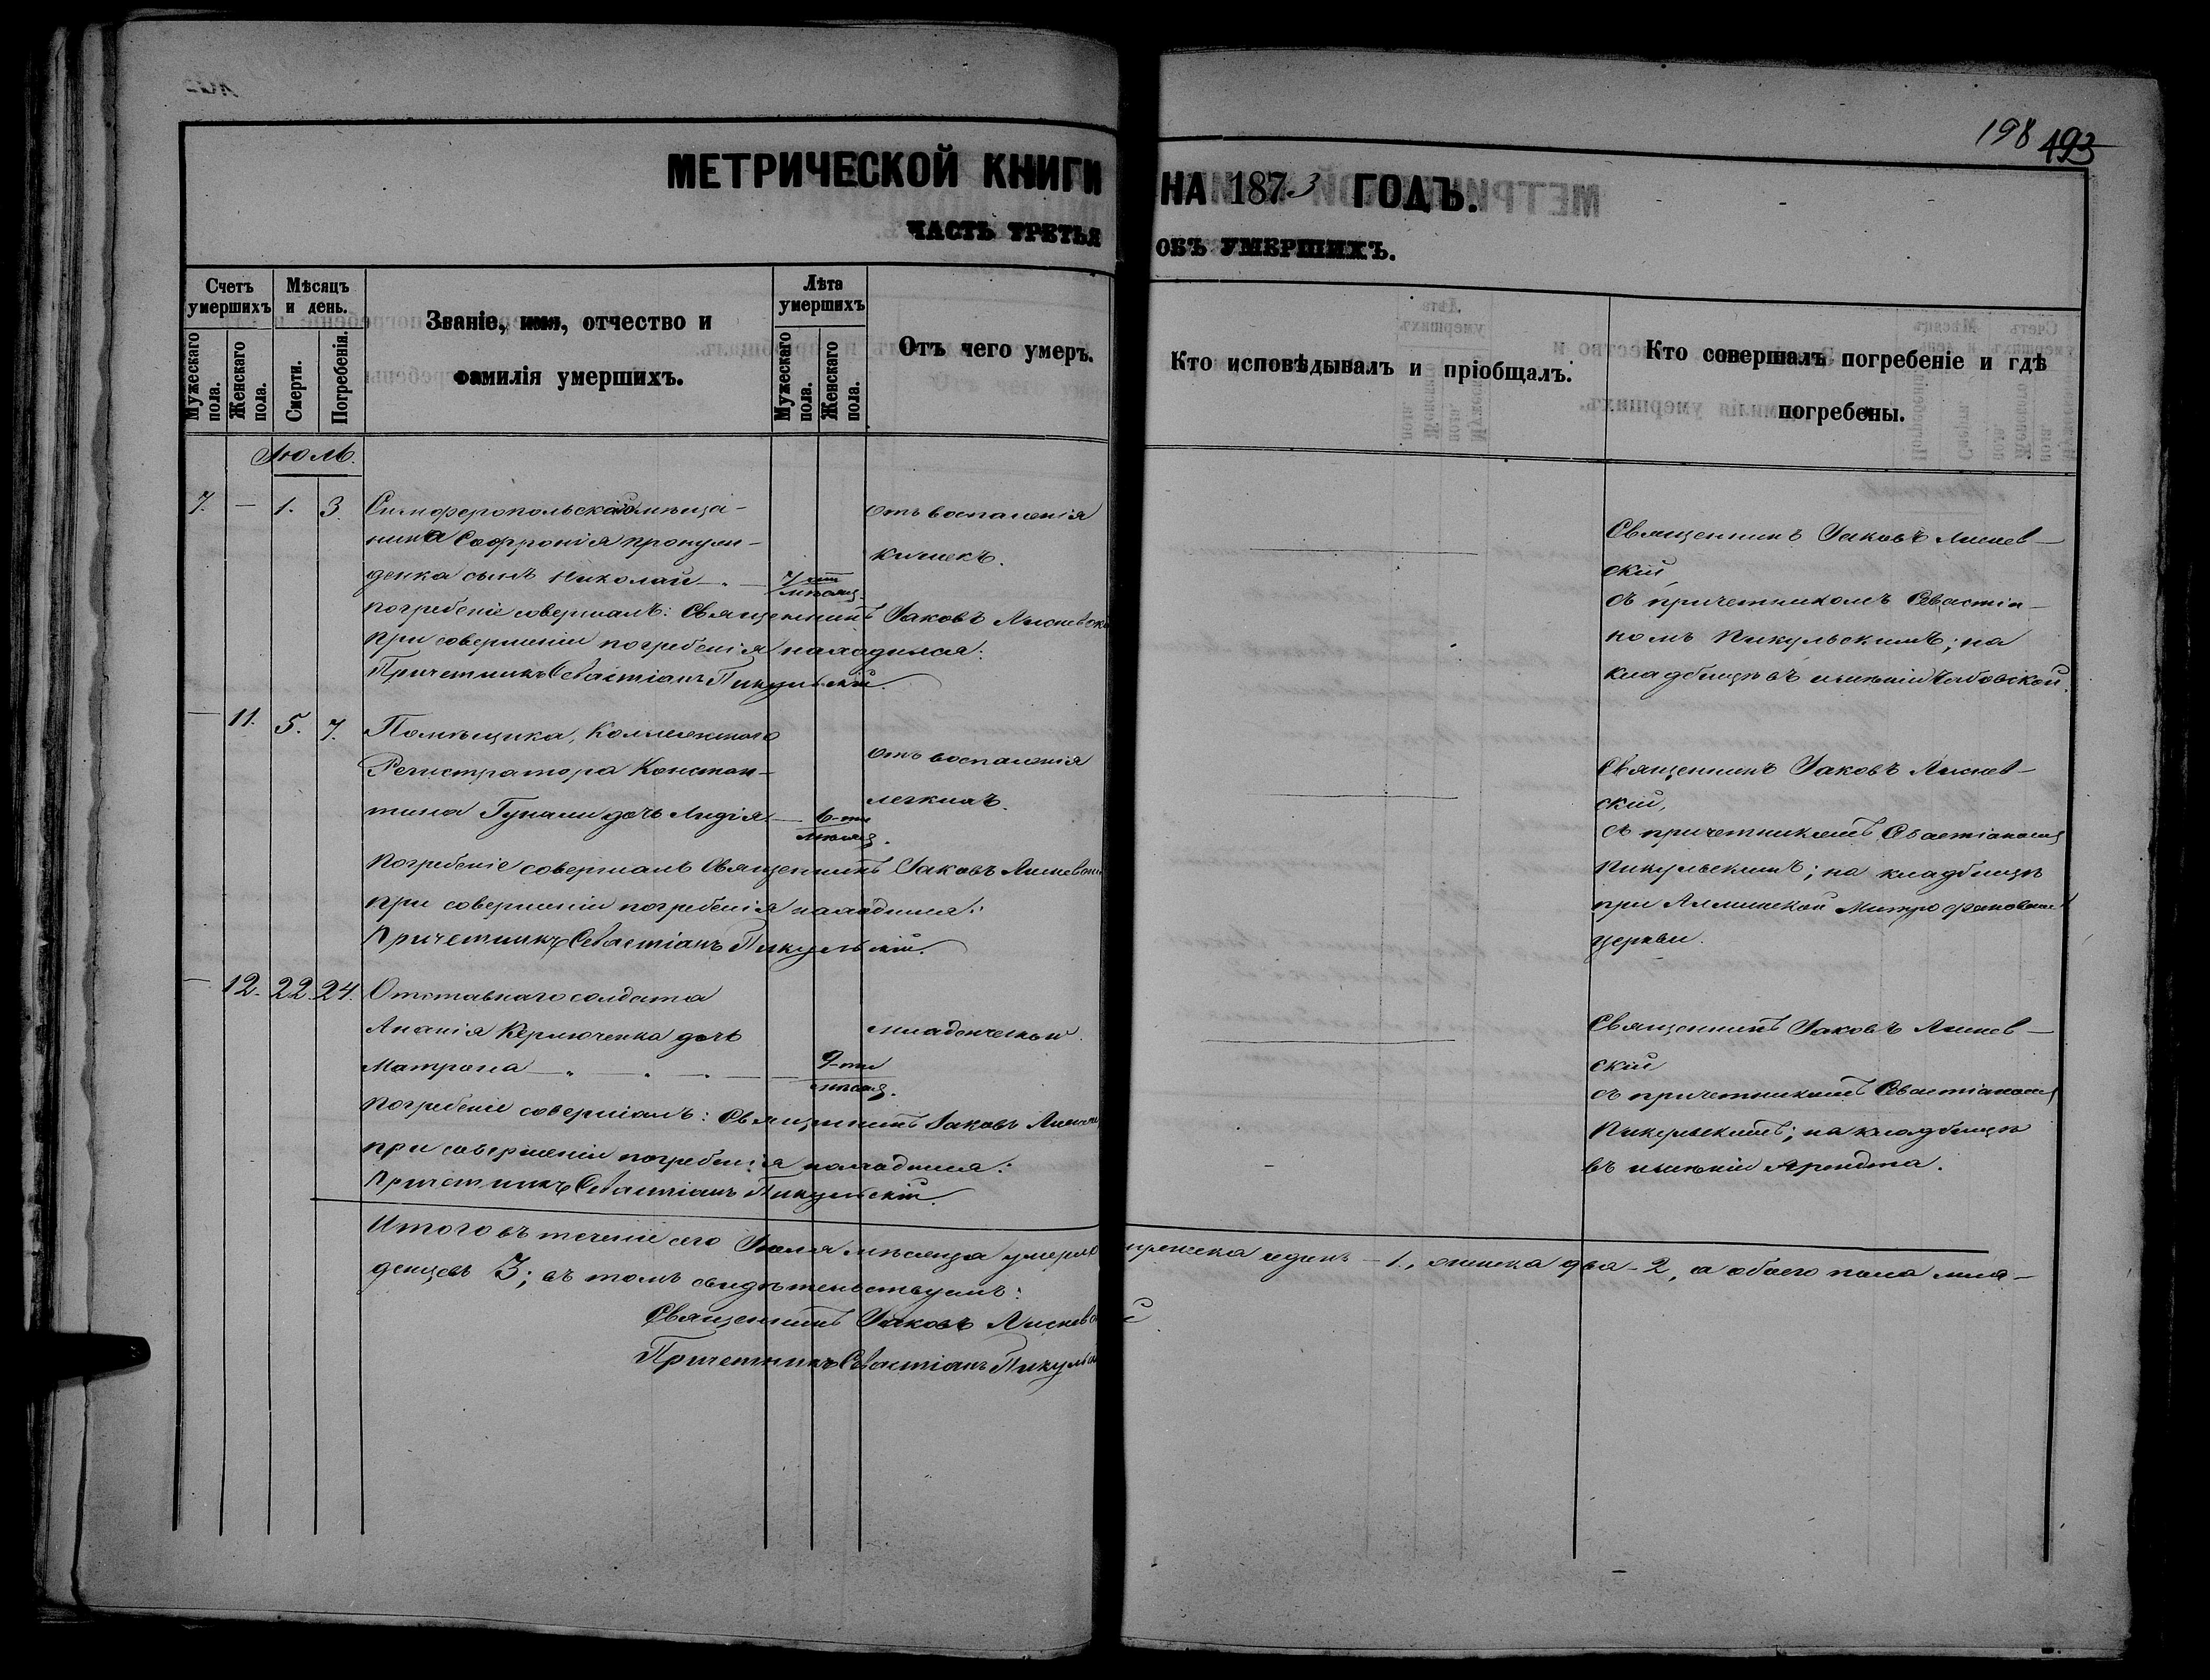 198 493
МЕТРИЧЕСКОЙ КНИГИ НА 1873 ГОДЪ.
ЧАСТЬ ТРЕТЬЯ ОБЪ УМЕРШИХЪ.
Счетъ умершихъ
Мужескаго пола.
Женскаго пола.
Мѣсяцъ и день.
Смерти.
Погребенія.
Званіе, имя, отчество и
фамилія умершихъ.
Лѣта умершихъ
Мужескаго пола.
Женскаго пола.
Отъ чего умеръ.
Кто исповѣдывалъ и пріобщалъ.
Кто совершалъ погребеніе и гдѣ
погребены.
Іюль.
7. — 1. 3.
Симферопольскаго мѣща-
нина Софронія
денка сынъ Николай
7 мѣсяц.
отъ воспаленія
кишекъ.
Священникъ Іаковъ Лиснев-
скій
съ причетникомъ Севастіа-
номъ Пикульскимъ; на
кладбищѣ въ имѣніи
Погребеніе совершалъ: Священникъ Іаковъ
при совершеніи погребенія находился:
Причетникъ Севастіанъ Пикульскій.
— 11. 5. 7.
Помѣщика, Коллежскаго
Регистратора Констан-
тина Гунали дочь Лидія
6-ти
мѣсяц.
отъ воспаленія
легкихъ.
Священникъ Іаковъ Лиснев-
скій,
съ причетникомъ Севастіаномъ
Пикульскимъ; на кладбищѣ
при Алминской Митрофановской
церкви.
Погребеніе совершалъ Священникъ Іаковъ
при совершеніи погребенія находился:
Причетникъ Севастіанъ Пикульскій.
— 12. 22. 24.
Отставнаго солдата
Ананія Кермюченка дочь
Матрона
9-ти
мѣсяц.
младенческой.
Священникъ Іаковъ Лиснев-
скій
съ причетникомъ Севастіаномъ
Пикульскимъ; на кладбищѣ
въ имѣніи Арендта.
Погребеніе совершалъ: Священникъ Іаковъ
при совершеніи погребенія находился:
Причетникъ Севастіанъ Пикульскій.
Итого въ теченіе сего Іюля мѣсяца умерло мужеска одинъ — 1, женска два — 2, а обоего пола мла-
денцевъ 3; въ томъ свидѣтельствуемъ:
Священникъ Іаковъ Лисневскій
Причетникъ Севастіанъ